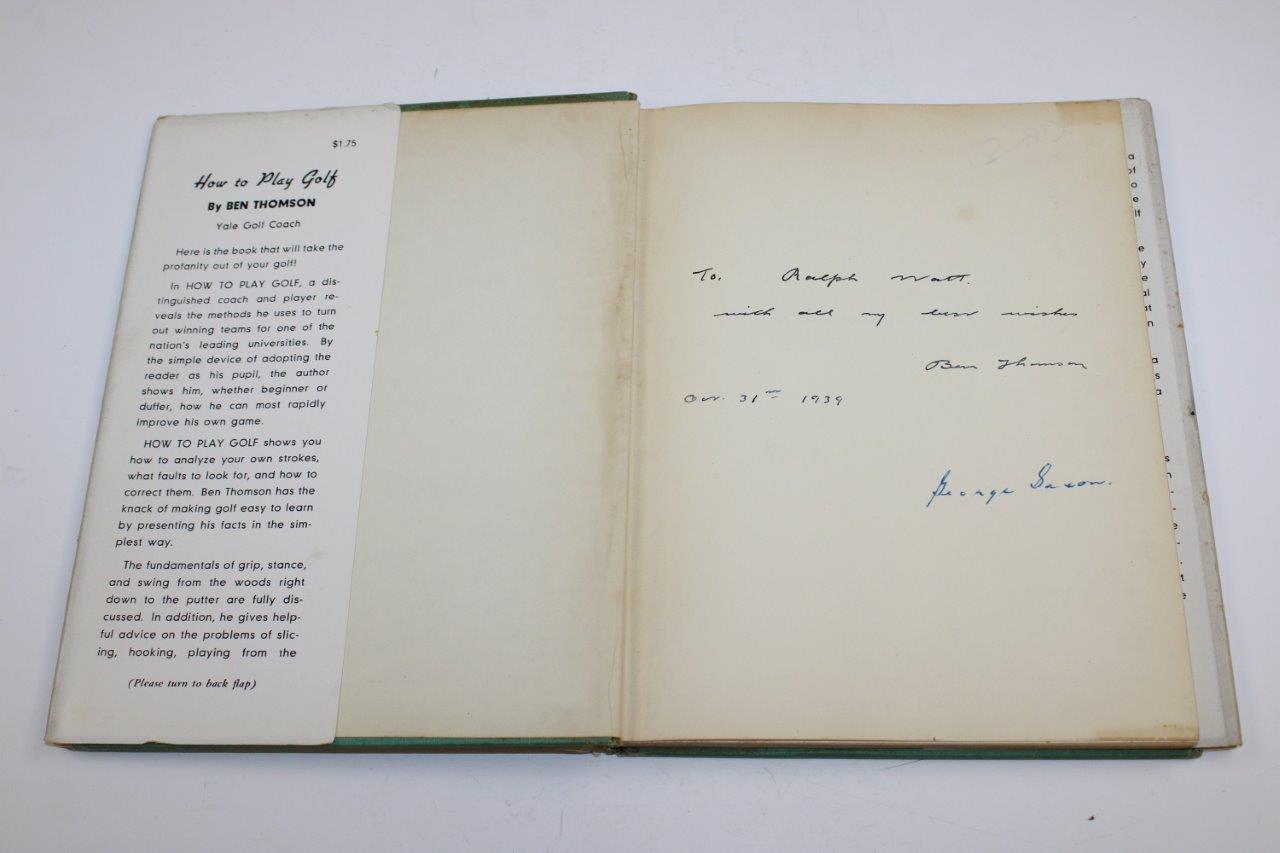 $1.75
How to Play Golf
By BEN THOMSON
Yale Golf Coach
Here is the book that will take the
profanity out of your golf!
In HOW TO PLAY GOLF, a dis-
tinguished coach and player re-
veals the methods he uses to turn
out winning teams for one of the
nation's leading universities. By
the simple device of adopting the
reader as his pupil, the author
shows him, whether beginner or
duffer, how he can most rapidly
improve his own game.
HOW TO PLAY GOLF shows you
how to analyze your own strokes,
what faults to look for, and how to
correct them. Ben Thomson has the
knack of making golf easy to learn
by presenting his facts in the sim-
plest way.
The fundamentals of grip, stance,
and swing from the woods right
down to the putter are fully dis-
cussed. In addition, he gives help-
ful advice on the problems of slic-
ing, hooking, playing from the
(Please turn to back flap)
To. Ralph Watt.
with all my best wishes
Ben Thomson
Oct. 31st 1939
George Saxon.